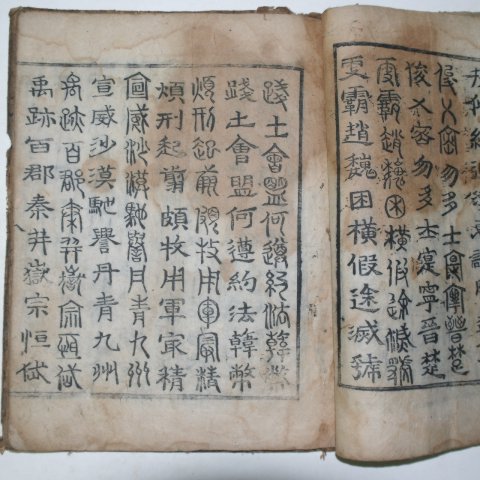 俊乂密勿多士寔寧晉楚
俊乂密勿多士寔寧晉楚
更霸趙魏困橫假途滅虢
更霸趙魏困橫假途滅虢
踐土會盟何遵約法韓幣
踐土會盟何遵約法韓幣
煩刑起翦頗牧用軍最精
煩刑起翦頗牧用軍最精
宣威沙漠馳譽丹青九州
宣威沙漠馳譽丹青九州
禹跡百郡秦井嶽宗恒岱
禹跡百郡秦井嶽宗恒岱